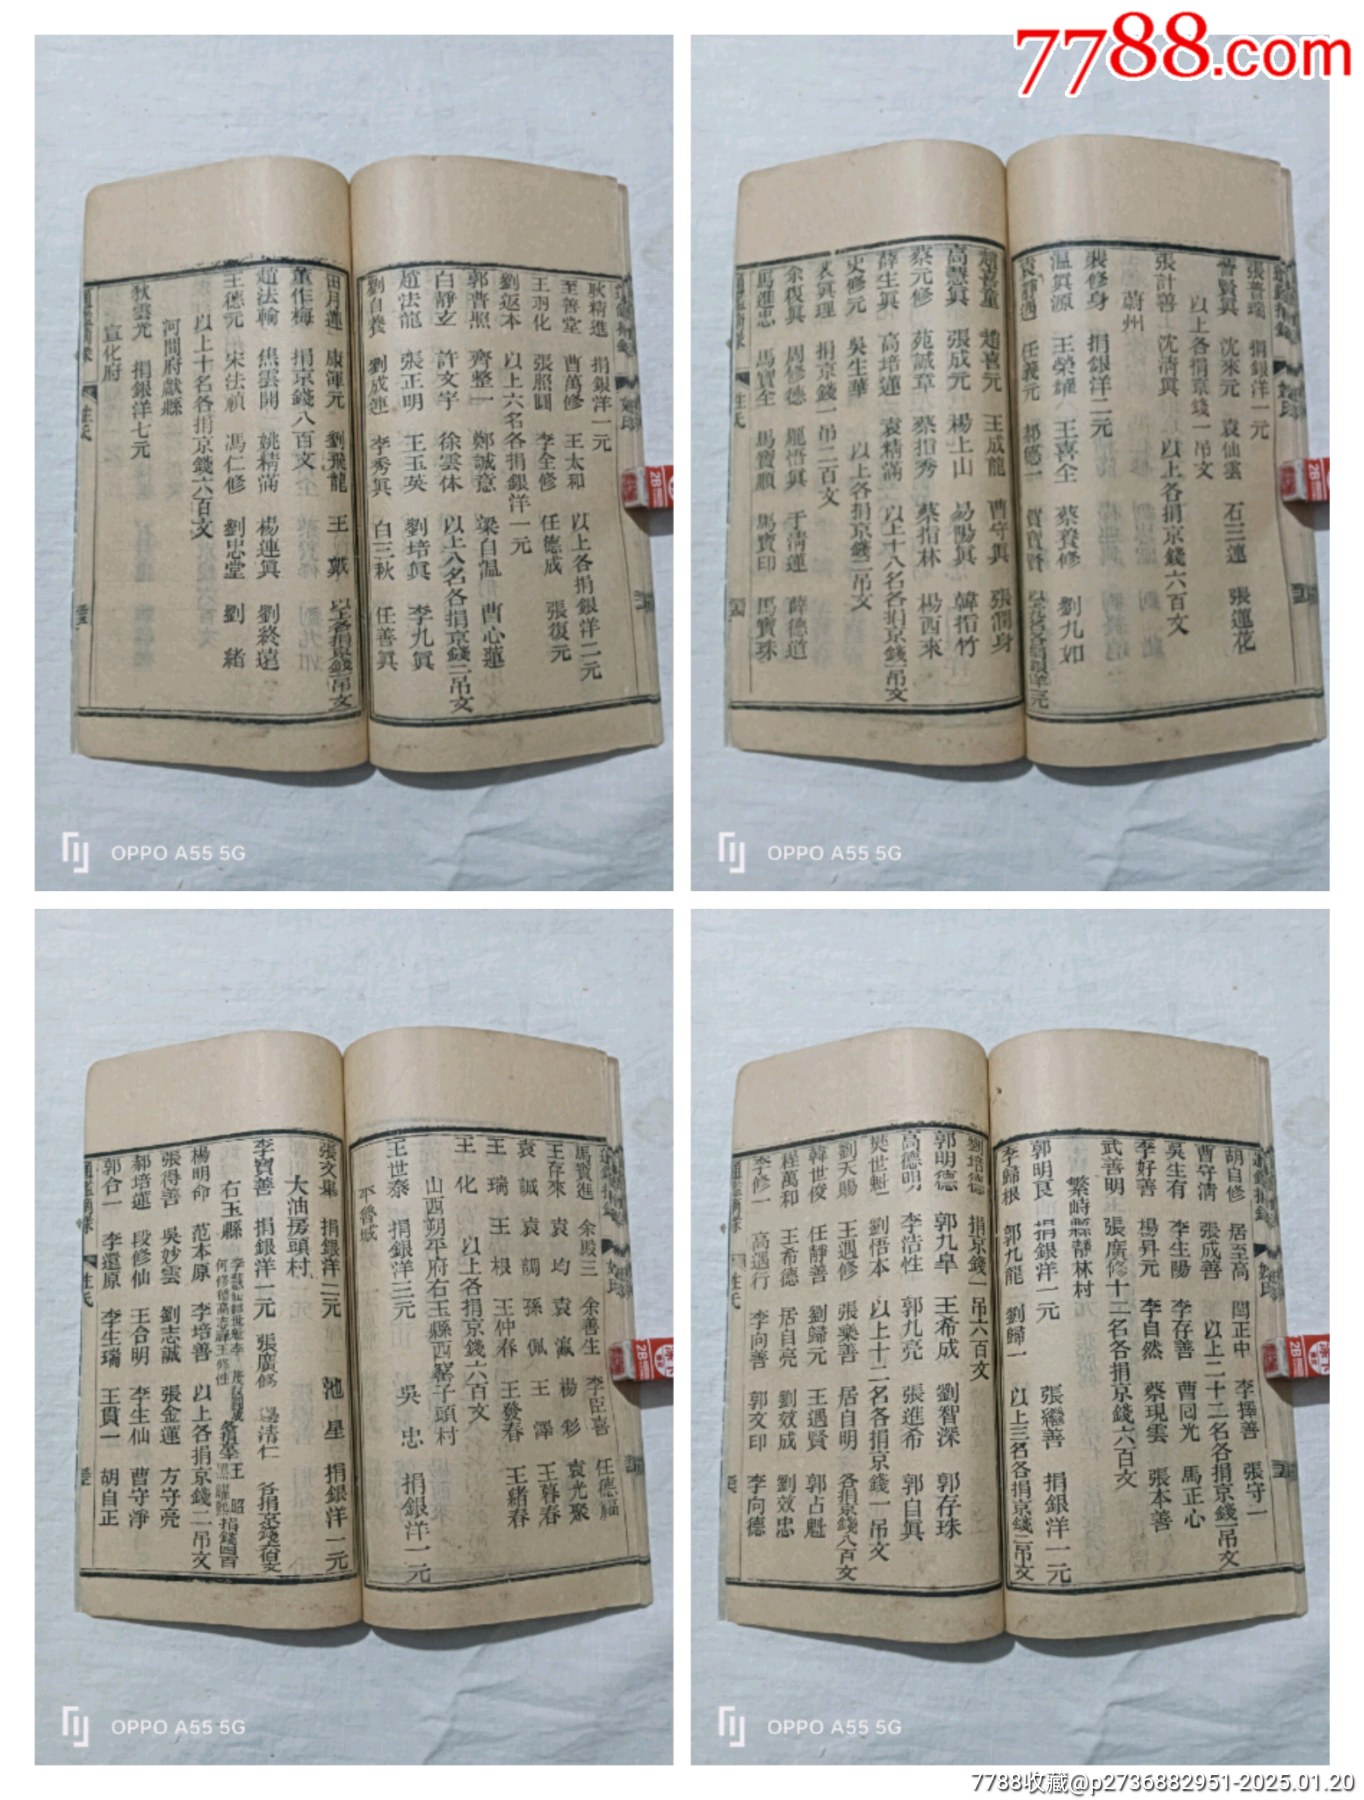 7788.com
耿精進 捐銀洋一元
至善堂 曹萬修 王太和 以上各捐銀洋二元
王羽化 張照圓 李全修 任德成 張復元
劉返本 以上六名各捐銀洋一元
郭普照 齊整一 鄭誠意 梁自溫 曹心蓮
白靜玄 許文宇 徐雲休 以上八名各捐京錢二吊文
趙法龍 張正明 王玉英 劉培眞 李九眞
劉自養 劉成連 李秀眞 白三秋 任善眞
田月蓮 康渾元 劉飛龍 王 戴
董作梅 捐京錢八百文
趙法輪 焦雲開 姚精滿 楊連興 劉終遠
王德元 宋法禎 馮仁修 劉忠堂 劉 緒
以上十名各捐京錢六百文
河間府獻縣
狄雲光 捐銀洋七元
宣化府
姓氏
OPPO A55 5G
張普瑞 捐銀洋一元
普賢眞 沈來元 袁仙雲 石三連 張蓮花
以上各捐京錢一吊文
張計善 沈清眞 以上各捐京錢六百文
蔚州
裴修身 捐銀洋二元
溫眞源 王榮耀 王喜全 蔡養修 劉九如
趙喜元 王成龍 曹守眞 張潤身
高慧眞 張成元 楊上山 易陽眞 韓指竹
蔡元修 苑誠章 蔡指秀 蔡指林 楊西來
薛生眞 高培蓮 袁精滿 以上十八名各捐京錢二吊文
史修元 吳生華 以上各捐京錢二吊文
袁眞理 捐京錢一吊二百文
余復眞 周修德 龐悟眞 于清蓮 薛德道
馬進忠 馬寶全 馬寶順 馬寶印 馬寶珠
姓氏
OPPO A55 5G
馬寶進 余殿三 余善生 李臣喜 任德福
王存來 袁 均 袁 瀛 楊 彩 袁光聚
袁 誠 袁 調 孫 佩 王 澤 王暮春
王 瑞 王 根 王仲春 王發春 王緒春
王 化 以上各捐京錢六百文
山西朔平府右玉縣西窰子頭村
王世泰 捐銀洋三元 吳 忠 捐銀洋一元
平魯城
張文集 捐銀洋二元 池 星 捐銀洋一元
大油房頭村
李寶善 捐銀洋一元 張廣修
右玉縣
楊明命 范本原 李培善 以上各捐京錢二吊文
張得善 吳妙雲 劉志誠 張金蓮 方守亮
郝培運 段修仙 王合明 李生仙 曹守淨
郭合一 李還原 李生瑞 王貫一 胡自正
姓氏
OPPO A55 5G
胡自修 居至高 閆正中 李擇善 張守一
曹守清 張成善 以上二十二名各捐京錢一吊文
吳生有 李生陽 李存善 曹回光 馬正心
李好善 楊昇元 李自然 蔡現雲 張本善
武善明 張廣修 十二名各捐京錢六百文
繁峙縣靜林村
郭明良 捐銀洋一元 張繼善 捐銀洋一元
李歸根 郭九龍 劉歸一 以上三名各捐京錢二吊文
劉培德 捐京錢一吊六百文
郭明德 郭九皐 王希成 劉智深 郭存珠
高德明 李浩性 郭九亮 張進希 郭自眞
樊世魁 劉悟本 以上十二名各捐京錢一吊文
劉天賜 王遇修 張樂善 居自明 各捐京錢八百文
韓世俊 任靜善 劉歸元 王遇賢 郭占魁
程萬和 王希德 居自亮 劉效成 劉效忠
李修一 高遇行 李向善 郭文印 李向德
姓氏
OPPO A55 5G
7788收藏@p2736882951-2025.01.20